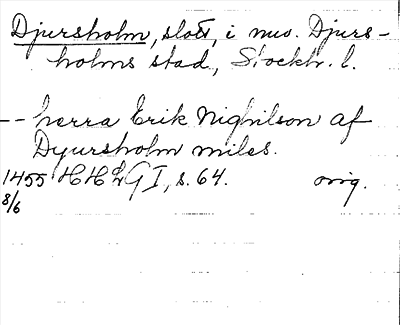 Djursholm, slott, i nuv. Djurs-
holms stad, Stockh. l.
-- herra Erik Nighilson af
Dyursholm miles.
1455 HH Gl I, s. 64. orig.
8/6